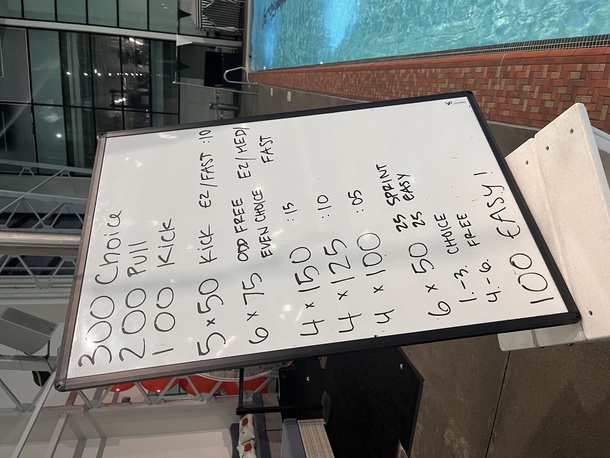 300 Choice
200 Pull
100 Kick
5 x 50 KICK EZ/FAST :10
6 x 75 ODD FREE EZ/MED/
EVEN CHOICE FAST
4 x 150 :15
4 x 125 :10
4 x 100 :05
6 x 50 25 SPRINT
25 EASY
1.-3. CHOICE
4.-6. FREE
100 EASY!